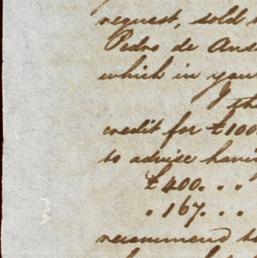 request, sold
Pedro de
which in
I
credit for £100
to advise having
£400. . .
" 167. . .
recommend